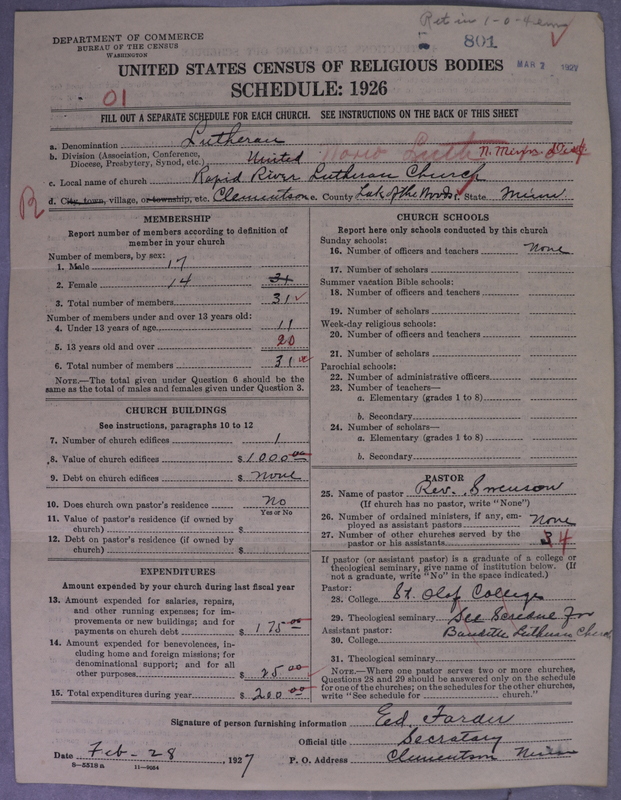 Ret in 1-0-4
DEPARTMENT OF COMMERCE
BUREAU OF THE CENSUS
WASHINGTON
801
MAR 2 1927
UNITED STATES CENSUS OF RELIGIOUS BODIES
SCHEDULE: 1926
01
FILL OUT A SEPARATE SCHEDULE FOR EACH CHURCH. SEE INSTRUCTIONS ON THE BACK OF THIS SHEET
a. Denomination Lutheran
b. Division (Association, Conference, Diocese, Presbytery, Synod, etc.) United Norw Luth
c. Local name of church Rapid River Lutheran Church
R
d. City, town, village, or township, etc. Clementson e. County Lake of the Woods f. State Minn
MEMBERSHIP
Report number of members according to definition of
member in your church
Number of members, by sex:
1. Male 17
2. Female 14 31
3. Total number of members 31
Number of members under and over 13 years old:
4. Under 13 years of age 11
5. 13 years old and over 20
6. Total number of members 31
NOTE.—The total given under Question 6 should be
same as the total of males and females given under Question 3.
CHURCH BUILDINGS
See instructions, paragraphs 10 to 12
7. Number of church edifices 1
8. Value of church edifices $ 1000.00
9. Debt on church edifices $ None
10. Does church own pastor's residence No
Yes or No
11. Value of pastor's residence (if owned by
church) $
12. Debt on pastor's residence (if owned by
church) $
EXPENDITURES
Amount expended by your church during last fiscal year
13. Amount expended for salaries, repairs,
and other running expenses; for im-
provements or new buildings; and for
payments on church debt $ 175.00
14. Amount expended for benevolences, in-
cluding home and foreign missions; for
denominational support; and for all
other purposes $ 25.00
15. Total expenditures during year $ 200.00
CHURCH SCHOOLS
Report here only schools conducted by this church
Sunday schools:
16. Number of officers and teachers None
17. Number of scholars
Summer vacation Bible schools:
18. Number of officers and teachers
19. Number of scholars
Week-day religious schools:
20. Number of officers and teachers
21. Number of scholars
Parochial schools:
22. Number of administrative officers
23. Number of teachers—
a. Elementary (grades 1 to 8)
b. Secondary
24. Number of scholars—
a. Elementary (grades 1 to 8)
b. Secondary
PASTOR
25. Name of pastor Rev. Swenson
(If church has no pastor, write "None")
26. Number of ordained ministers, if any, em-
ployed as assistant pastors None
27. Number of other churches served by the
pastor or his assistants 3 4
If pastor (or assistant pastor) is a graduate of a college or
theological seminary, give name of institution below. (If
not a graduate, write "No" in the space indicated.)
Pastor:
28. College St. Olaf College
29. Theological seminary See Scredue For
Assistant pastor: Baudette Lutheran Church
30. College
31. Theological seminary
NOTE.—Where one pastor serves two or more churches,
Questions 28 and 29 should be answered only on the schedule
for one of the churches; on the schedules for the other churches,
write "See schedule for church."
Signature of person furnishing information Ed
Official title Secratary
Date Feb-28, 1927 P. O. Address Clementson Minn
8-5518 a 11-9064